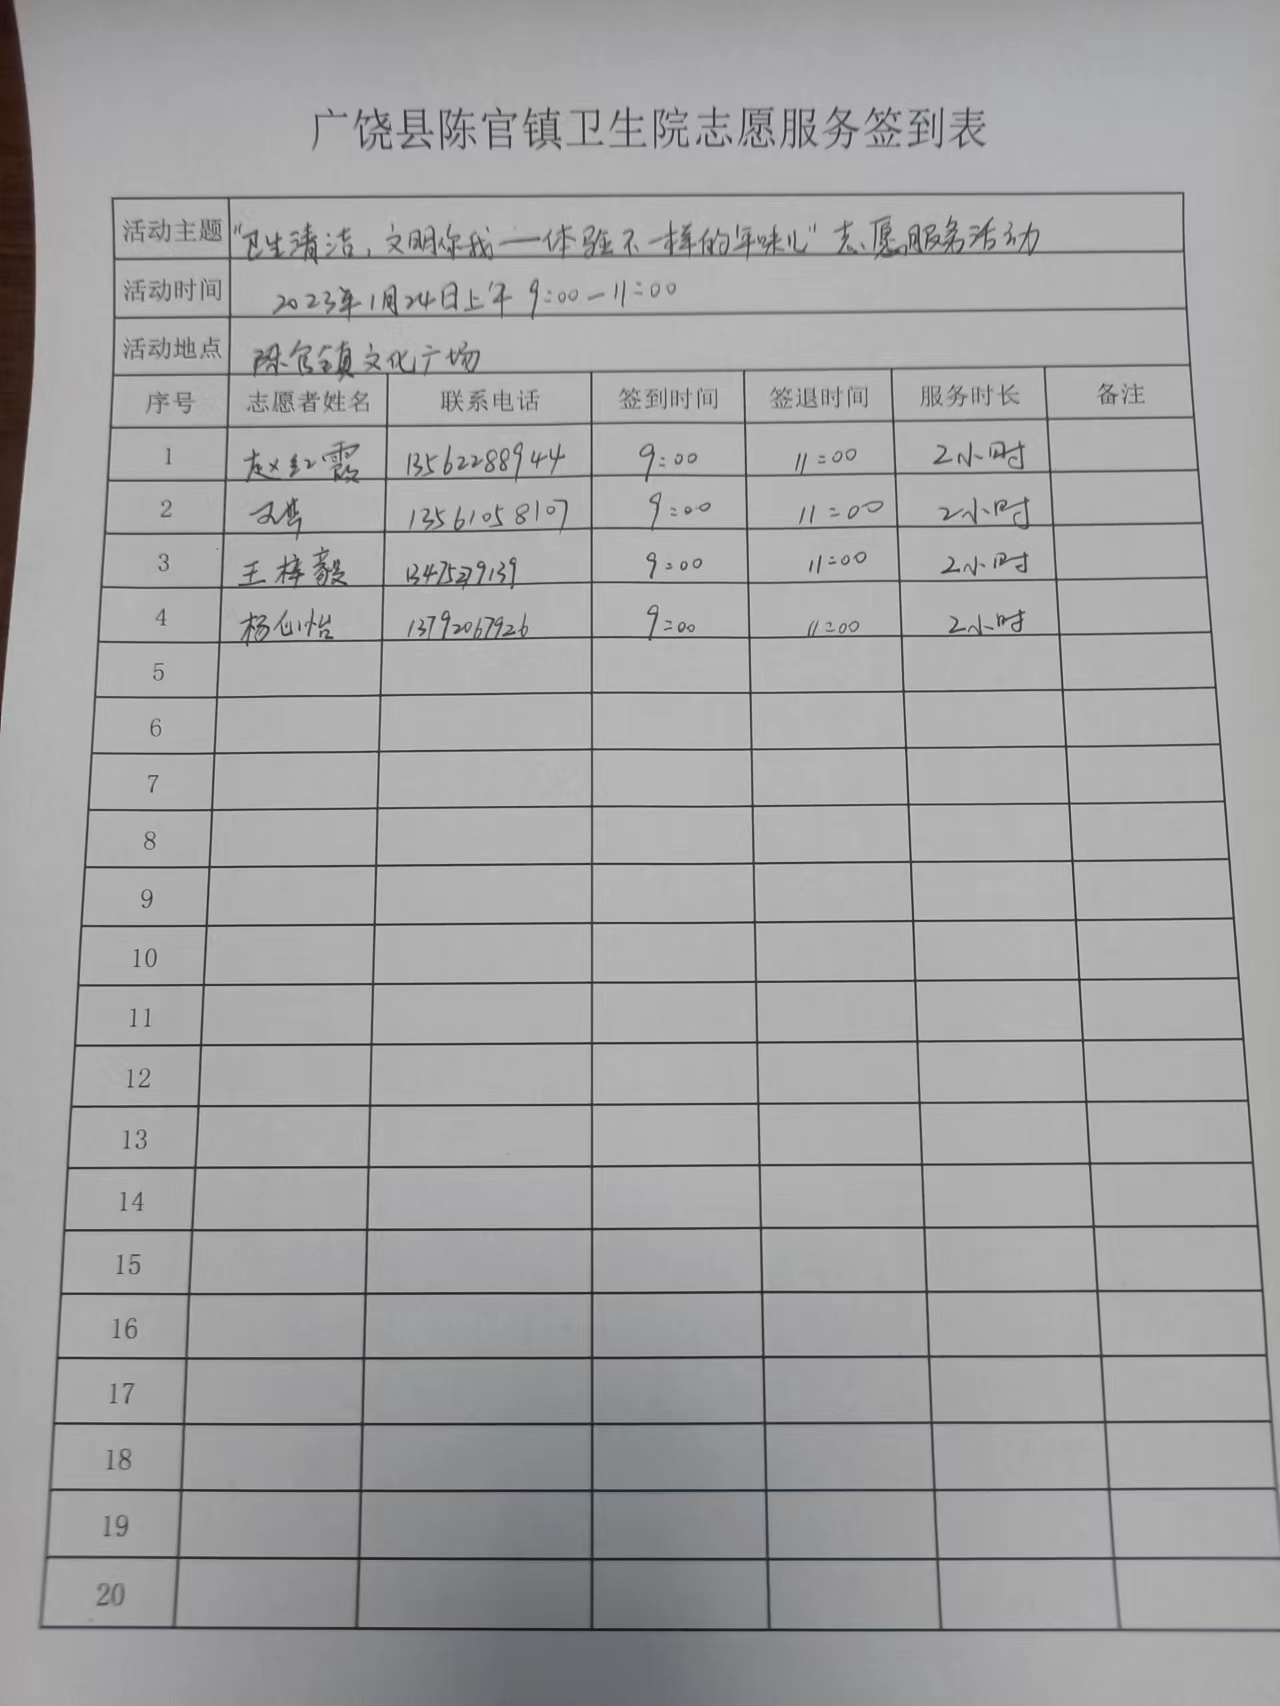 广饶县陈官镇卫生院志愿服务签到表
活动主题 "卫生清洁，文明你我——体验不一样的'年味儿'"志愿服务活动
活动时间 2023年1月24日上午 9:00—11:00
活动地点 陈官镇文化广场
序号 志愿者姓名 联系电话 签到时间 签退时间 服务时长 备注
1 赵红霞 13562288944 9:00 11:00 2小时
2 13561058107 9:00 11:00 2小时
3 王梓毅 9:00 11:00 2小时
4 杨心怡 13792067926 9:00 11:00 2小时
5
6
7
8
9
10
11
12
13
14
15
16
17
18
19
20